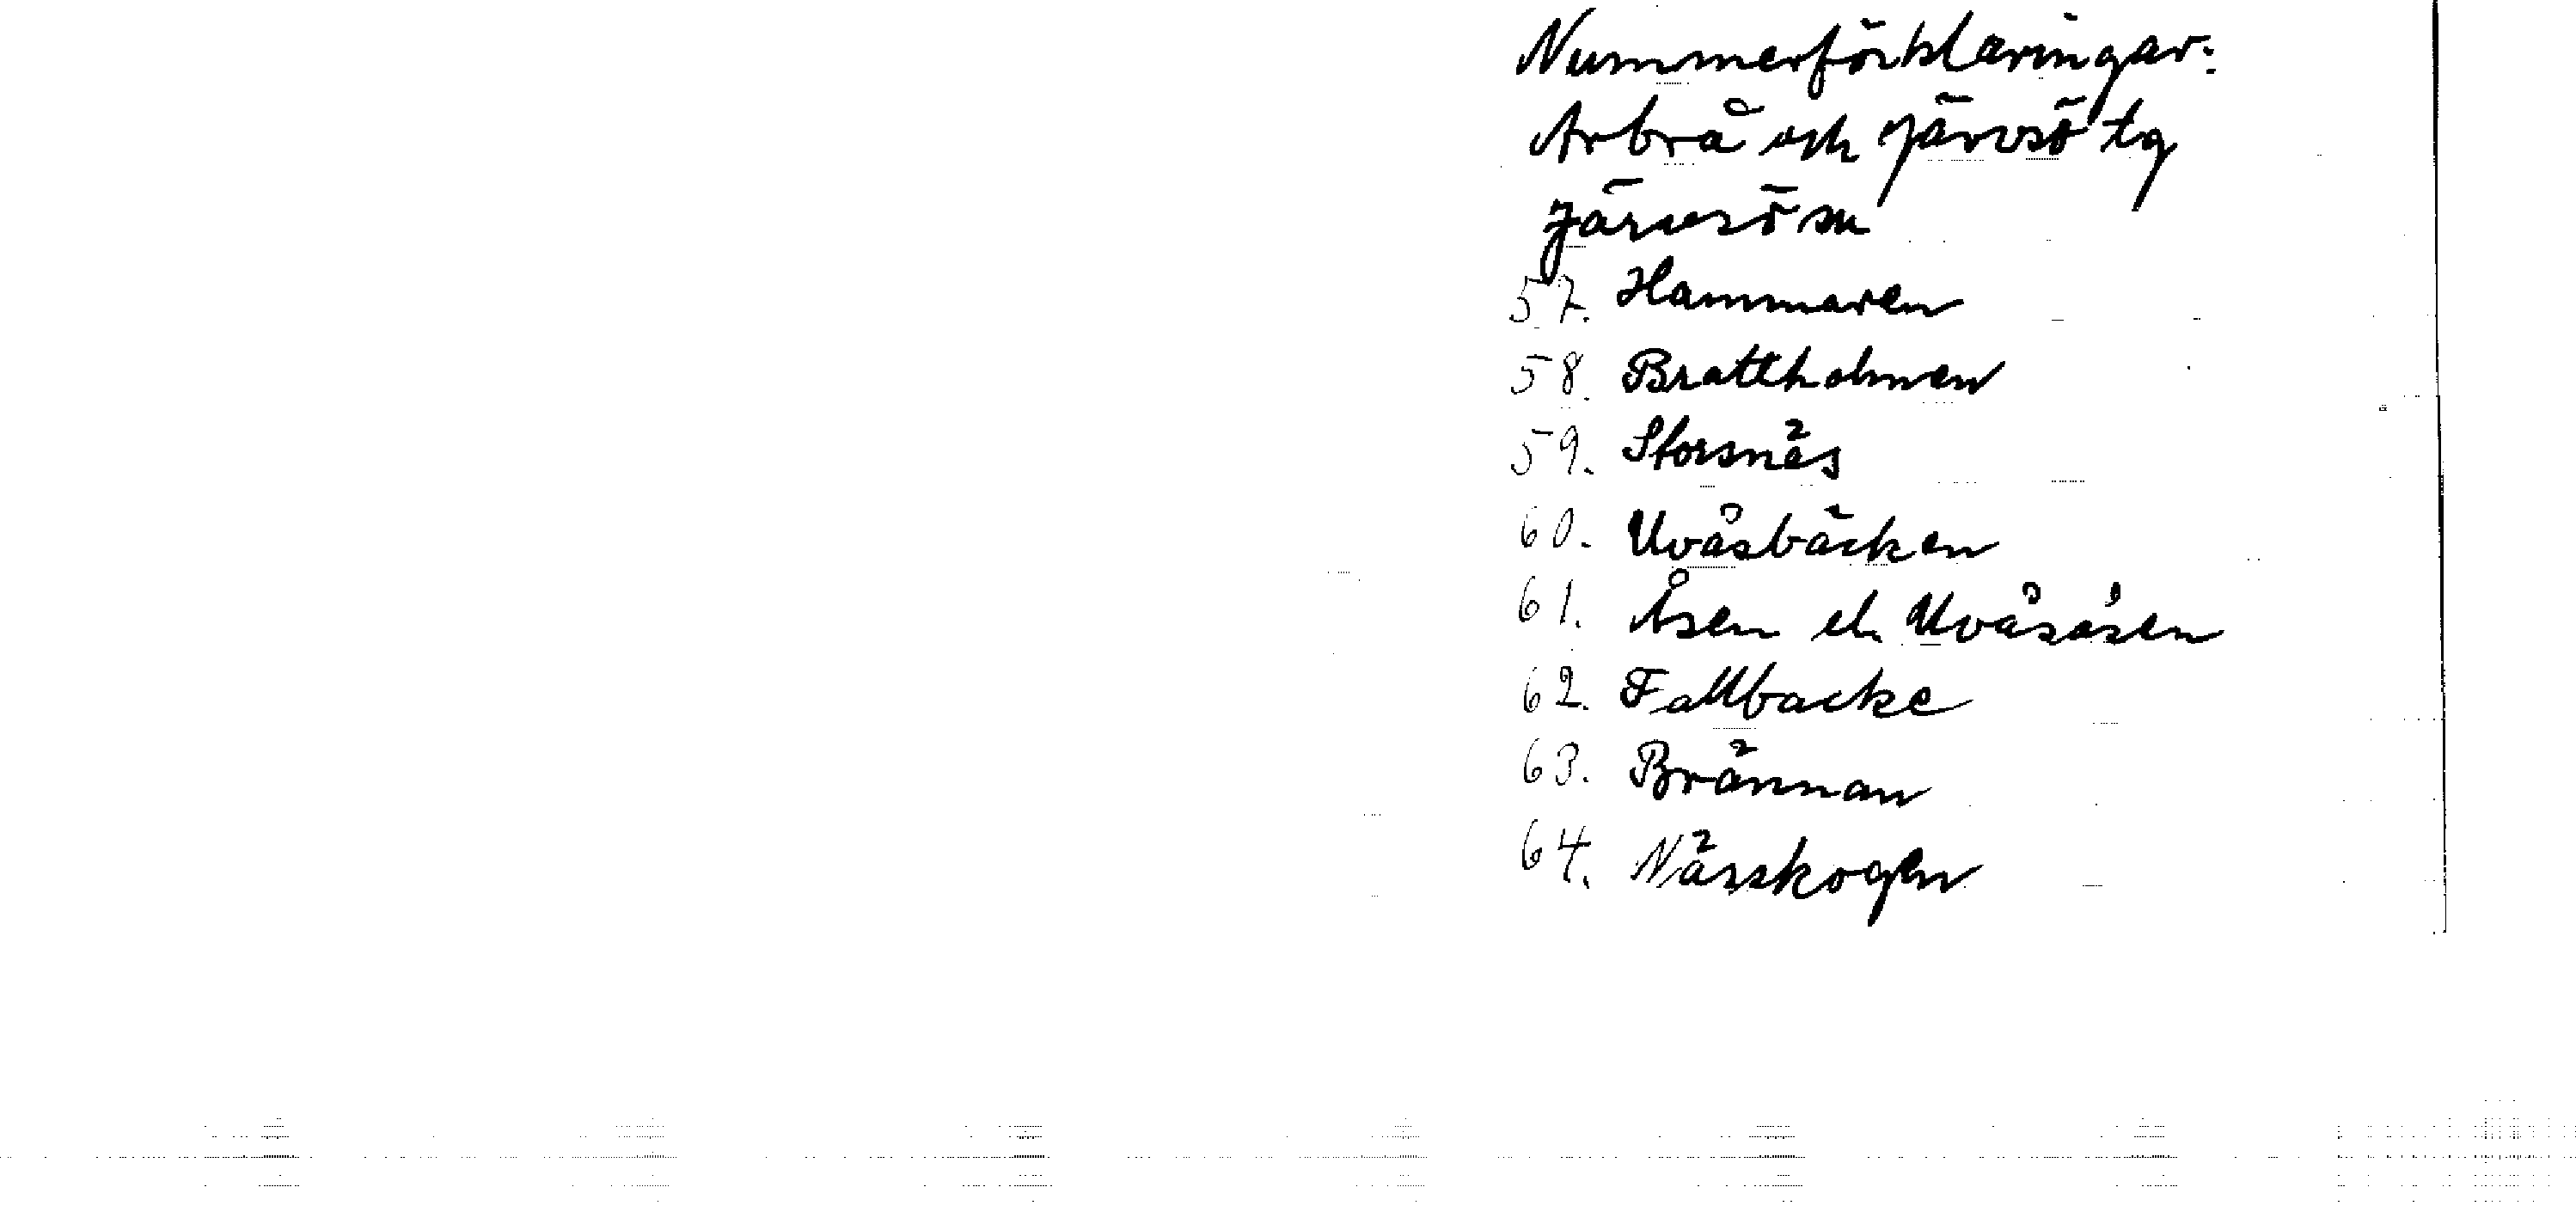 Nummerförklaringar:
Arbrå och Järvsö tg
Järvsö sn
57. Hammaren
58. Brattholmen
59. Storsnäs
60. Uvåsbäcken
61. Åsen el. Uvåsåsen
62. Fallbacke
63. Brännan
64. Nässkogen